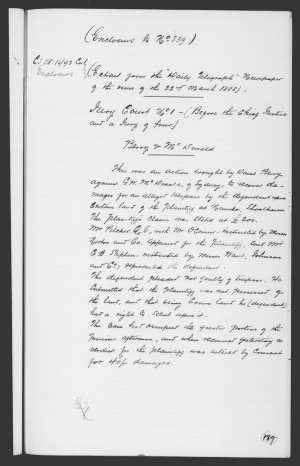 (Enclosure to No 239)
Enclosure
(Extract from the "Daily Telegraph" Newspaper
of the issue of the 22nd March 1888).
Jury Court No 1 - (Before the Chief Justice
and a Jury of four.)
Berry v McDonald
This was an action brought by David Berry
against G. M. McDonald, of Sydney, to recover da-
mages for an alleged trespass by the defendant upon
certain land of the Plaintiff at Shoalhaven.
The Plaintiff's claim was stated at £ 200.
Mr Pilcher Q.C, with Mr O'Connor instructed by Messrs
and Co. appeared for the Plaintiff, and Mr
C. B. Stephen instructed by Messrs Want, Johnson
and Co, represented the defendant.
The defendant pleaded not guilty of trespass. He
submitted that the Plaintiff was not possessed of
the land, and that being Crown land he (defendant)
had a right to select upon it.
The case had occupied the greater portion of the
previous afternoon, and when resumed yesterday a
verdict for the Plaintiff was entered by Consent
for 40/- damages.